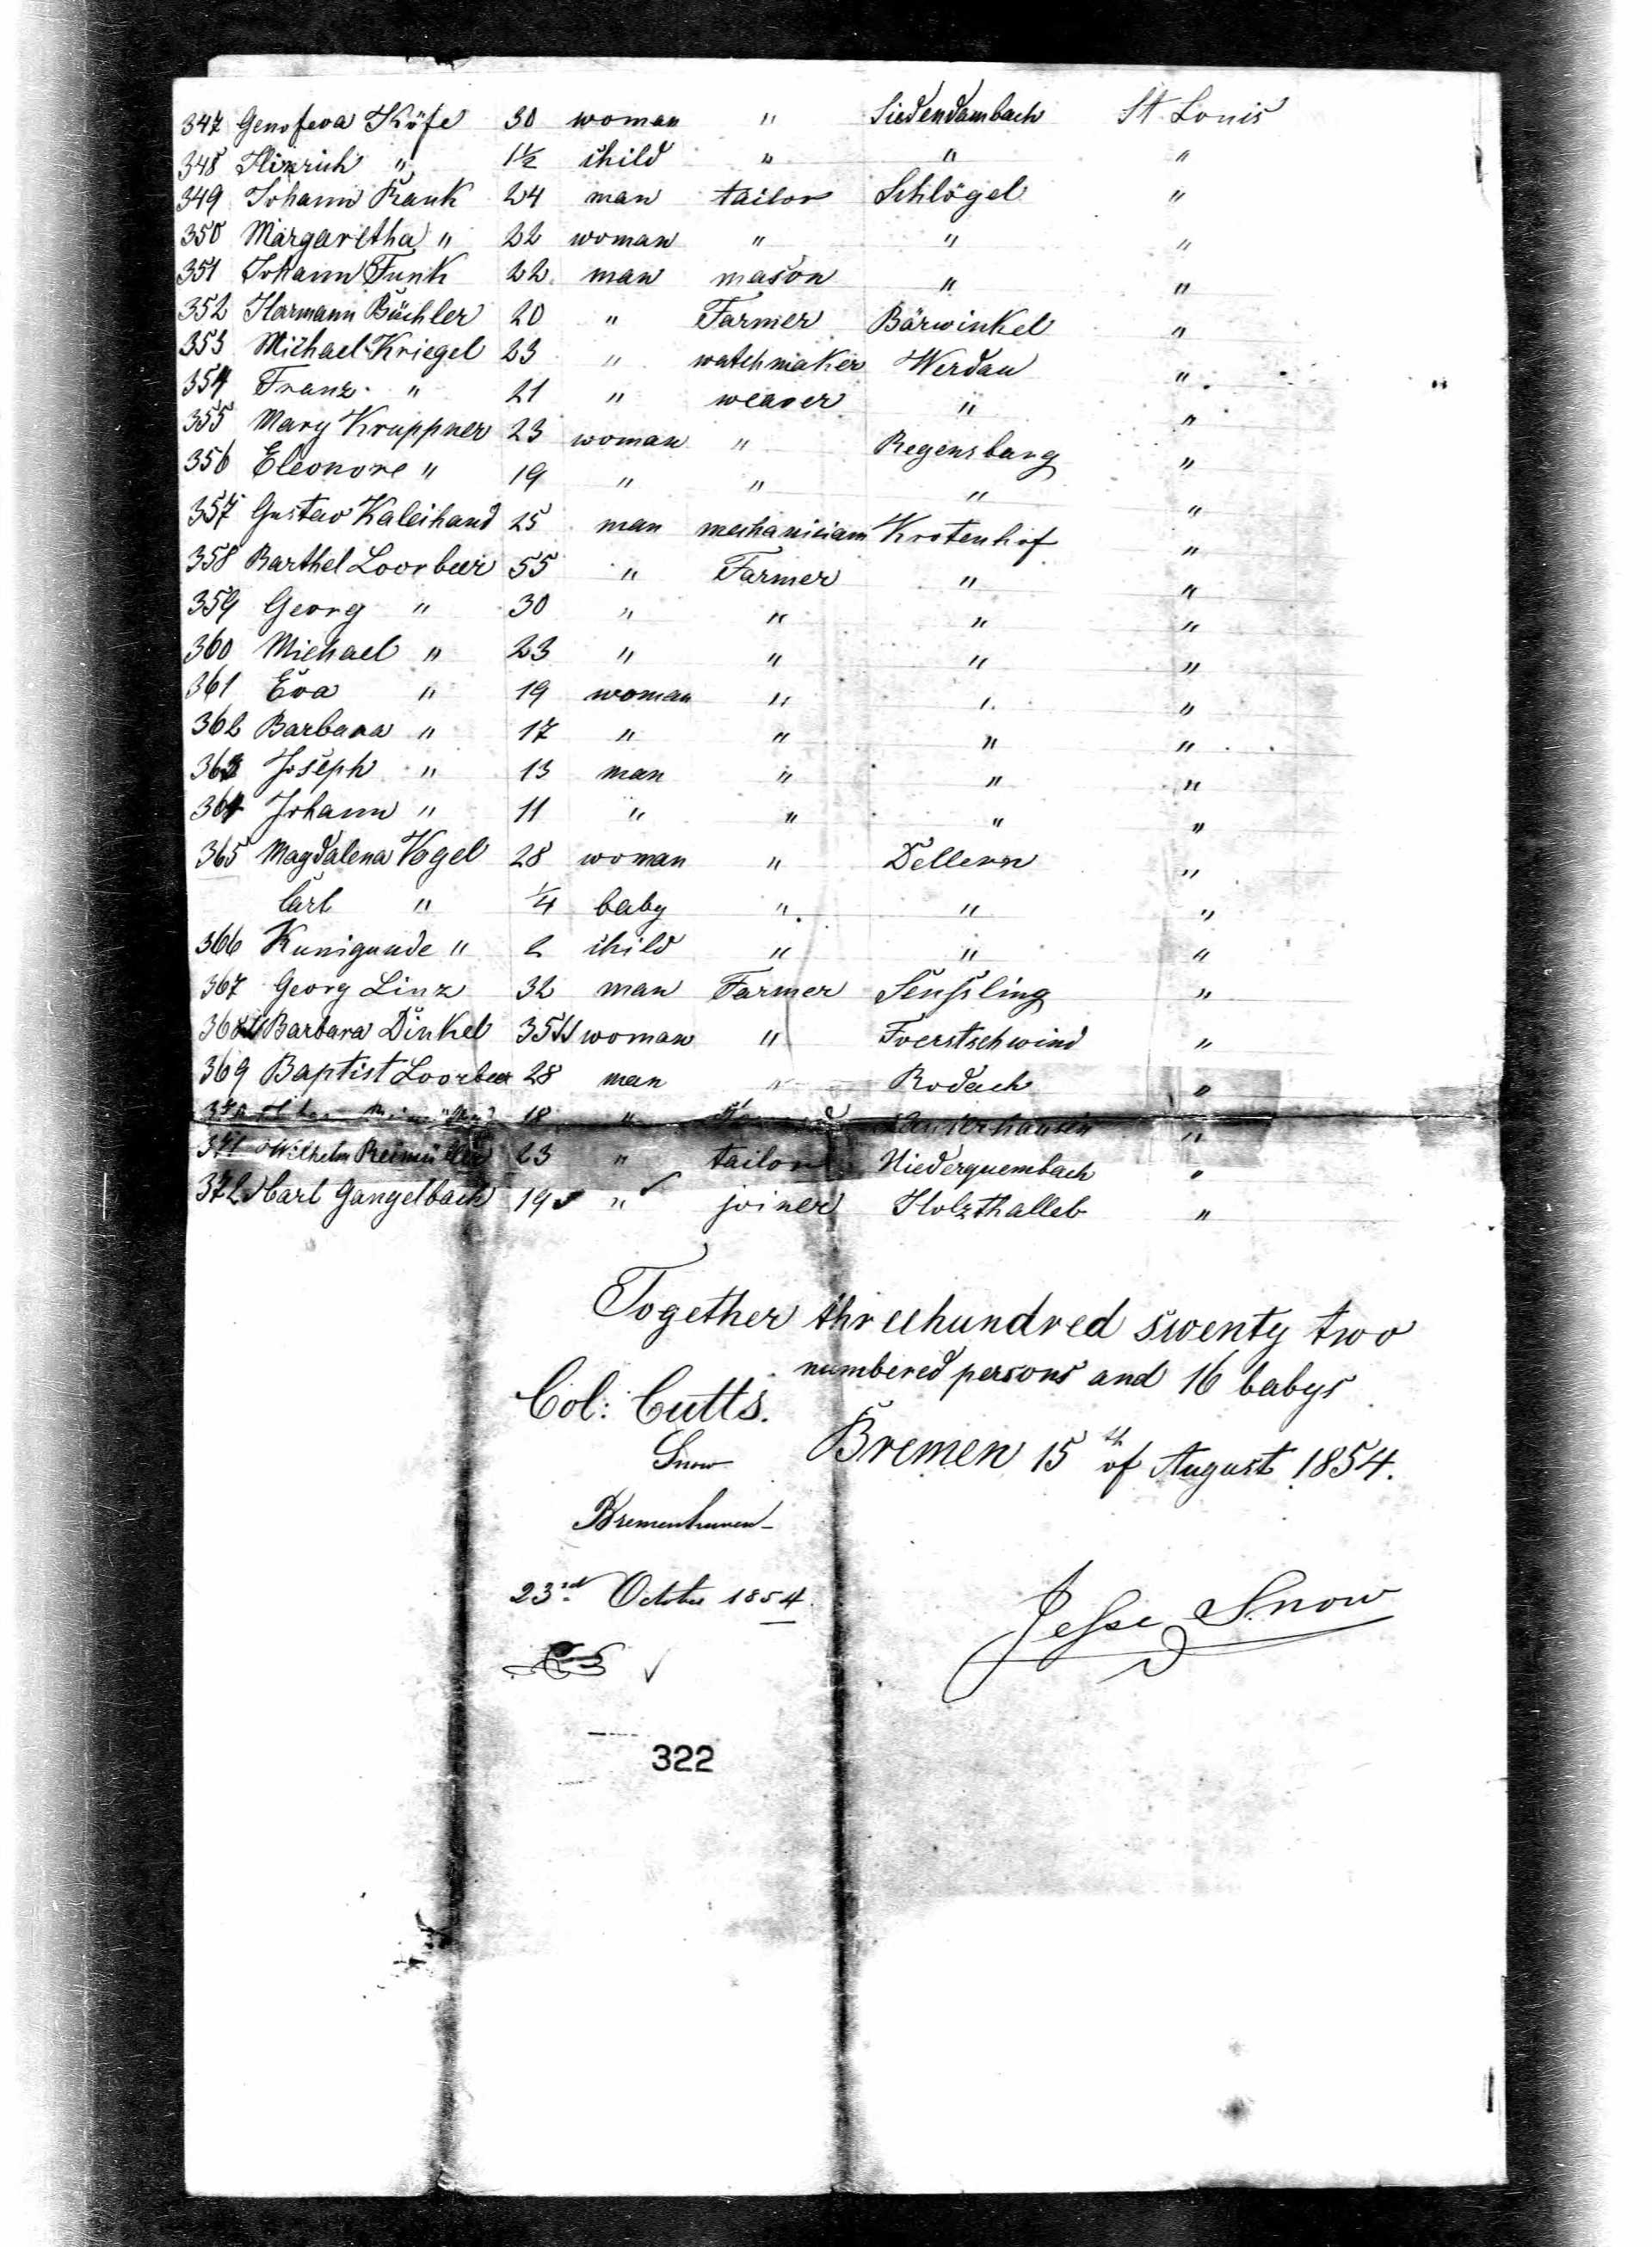 347 Genofeva Köfe 30 woman " Siedendambach St. Louis
348 Hinrich " 1½ child " " "
349 Johann Rauk 24 man tailor Schlögel "
350 Margaretha " 22 woman " " "
351 Johann Funk 22 man mason " "
352 Harmann Büchler 20 " Farmer Bärwinkel "
353 Michael Kriegel 23 " watchmaker Werdau "
354 Franz " 21 " weaver " "
355 Mary Kruppner 23 woman " Regensburg "
356 Eleonore " 19 " " " "
357 Gustav Kaleihand 25 man mechaniciam Krotenhof "
358 Barthel Loorbeer 55 " Farmer " "
359 Georg " 30 " " " "
360 Michael " 23 " " " "
361 Eva " 19 woman " " "
362 Barbara " 17 " " " "
363 Joseph " 13 man " " "
364 Johann " 11 " " " "
365 Magdalena Vogel 28 woman " Dellern "
Carl " ¼ baby " " "
366 Kunigunde " 2 child " " "
367 Georg Linz 32 man Farmer Senssling "
368 Barbara Dinkel 35 woman " Foerstschwind "
369 Baptist Loorbeer 28 man " Rodach "
370 18 " "
371 Wilhelm 23 " tailor Niederquembach "
372 Carl Gangelbach 19 " joiner Holzthalleb "
Together threehundred swenty two
numbered persons and 16 babys
Col: Cutts.
Snow
Bremen 15th of August 1854.
Bremenhaven
23rd October 1854
Jesse Snow
322